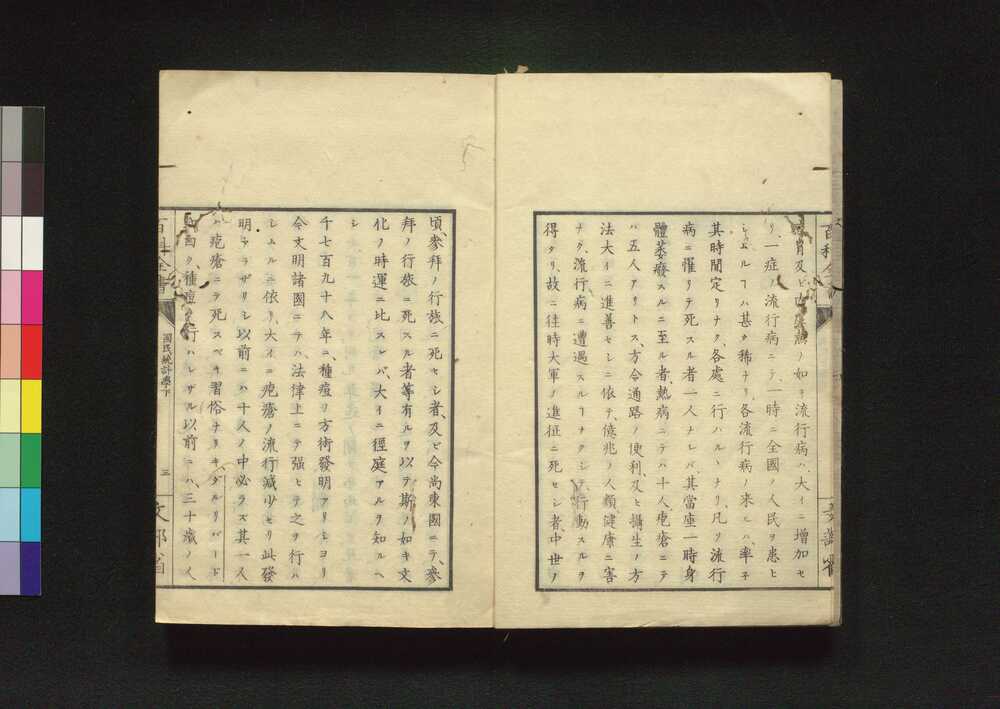 及ビ
熱ノ如キ流行病ハ、大イニ増加セ
リ、一症ノ流行病ニテ、一時ニ全國ノ人民ヲ患ヒ
シムルヿハ甚タ稀ナリ、各流行病ノ来ルハ、率子
其時間定リナク、各處ニ行ハルヽナリ凡ソ流行
病ニ罹リテ死スル者一人ナレバ、其當座一時身
體萎癈スルニ至ル者、熱病ニテハ十人疱瘡ニテ
ハ五人アリトス、方今通路ノ便利、及ヒ攝生ノ方
法大イニ進善セシニ依テ、億兆ノ人類、健康ニ害
ナク、流行病ニ遭遇スルヿナクシテ、行動スルヲ
得タリ、故ニ往時大軍ノ進征ニ死セシ者、中世ノ
頃、參拜ノ行旅ニ死セシ者、及ビ今尚東國ニテ、參
拜ノ行旅ニ死スル者等有ルヲ以テ、斯ノ如キ文
化ノ時運ニ比スレバ、大イニ徑庭アルヲ知ルヘ
シ
千七百九十八年ニ、種痘ノ方術發明アリシヨリ
令文明諸國ニテハ、法律上ニテ强ヒテ之ヲ行ハ
シムルニ依リ、大イニ疱瘡ノ流行減少セリ此發
明アラザリシ以前ニハ、十人ノ中必ラズ其一人
ハ疱瘡ニテ死スベキ習俗ナリキ、ダルリバード
曰ク、種痘ノ行ハレザル以前ニハ、三十歳ノ人
百科全書
國民統計學下
三
文部省